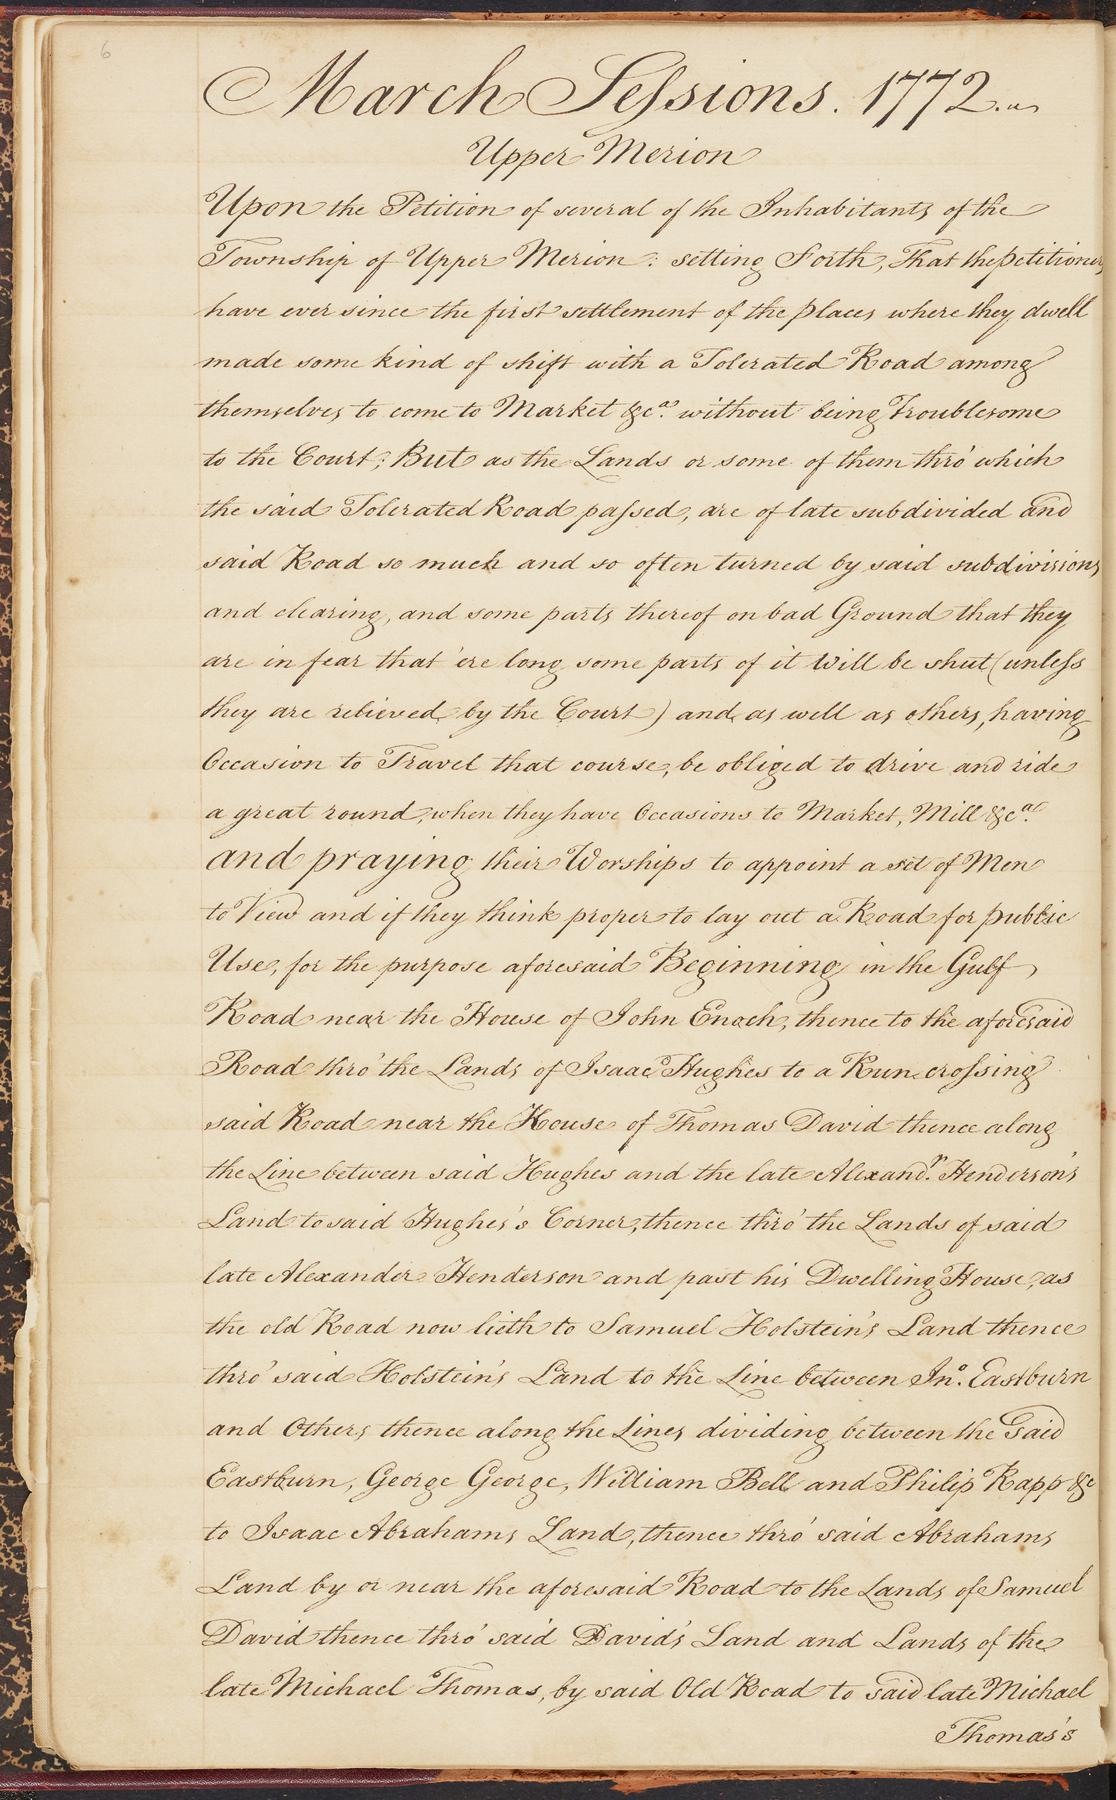 6
March Sessions. 1772.
Upper Merion
Upon the Petition of several of the Inhabitants of the
Township of Upper Merion: setting Forth, That the Petitioners
have ever since the first settlement of the places where they dwell
made some kind of shift with a Tolerated Road among
themselves to come to Market &ca. without being Troublesome
to the Court; But as the Lands or some of them thro' which
the said Tolerated Road passed, are of late subdivided and
said Road so much and so often turned by said subdivisions
and clearing, and some parts thereof on bad Ground that they
are in fear that 'ere long some parts of it will be shut (unless
they are relieved by the Court) and as well as others, having
Occasion to Travel that course, be obliged to drive and ride
a great round, when they have Occasions to Market, Mill &ca.
and praying their Worships to appoint a set of Men
to View and if they think proper to lay out a Road for public
Use, for the purpose aforesaid Beginning in the Gulf
Road near the House of John Enoch, thence to the aforesaid
Road thro' the Lands of Isaac Hughes to a Run crossing
said Road near the House of Thomas David thence along
the Line between said Hughes and the late Alexandr. Henderson's
Land to said Hughes's Corner, thence thro' the Lands of said
late Alexander Henderson and past his Dwelling House, as
the old Road now lieth to Samuel Holstein's Land thence
thro' said Holstein's Land to the Line between Jno. Eastburn
and Others thence along the Lines dividing between the said
Eastburn, George George, William Bell and Philip Rapp &c
to Isaac Abrahams Land, thence thro' said Abrahams
Land by or near the aforesaid Road to the Lands of Samuel
David thence thro' said David's Land and Lands of the
late Michael Thomas, by said Old Road to said late Michael
Thomas's